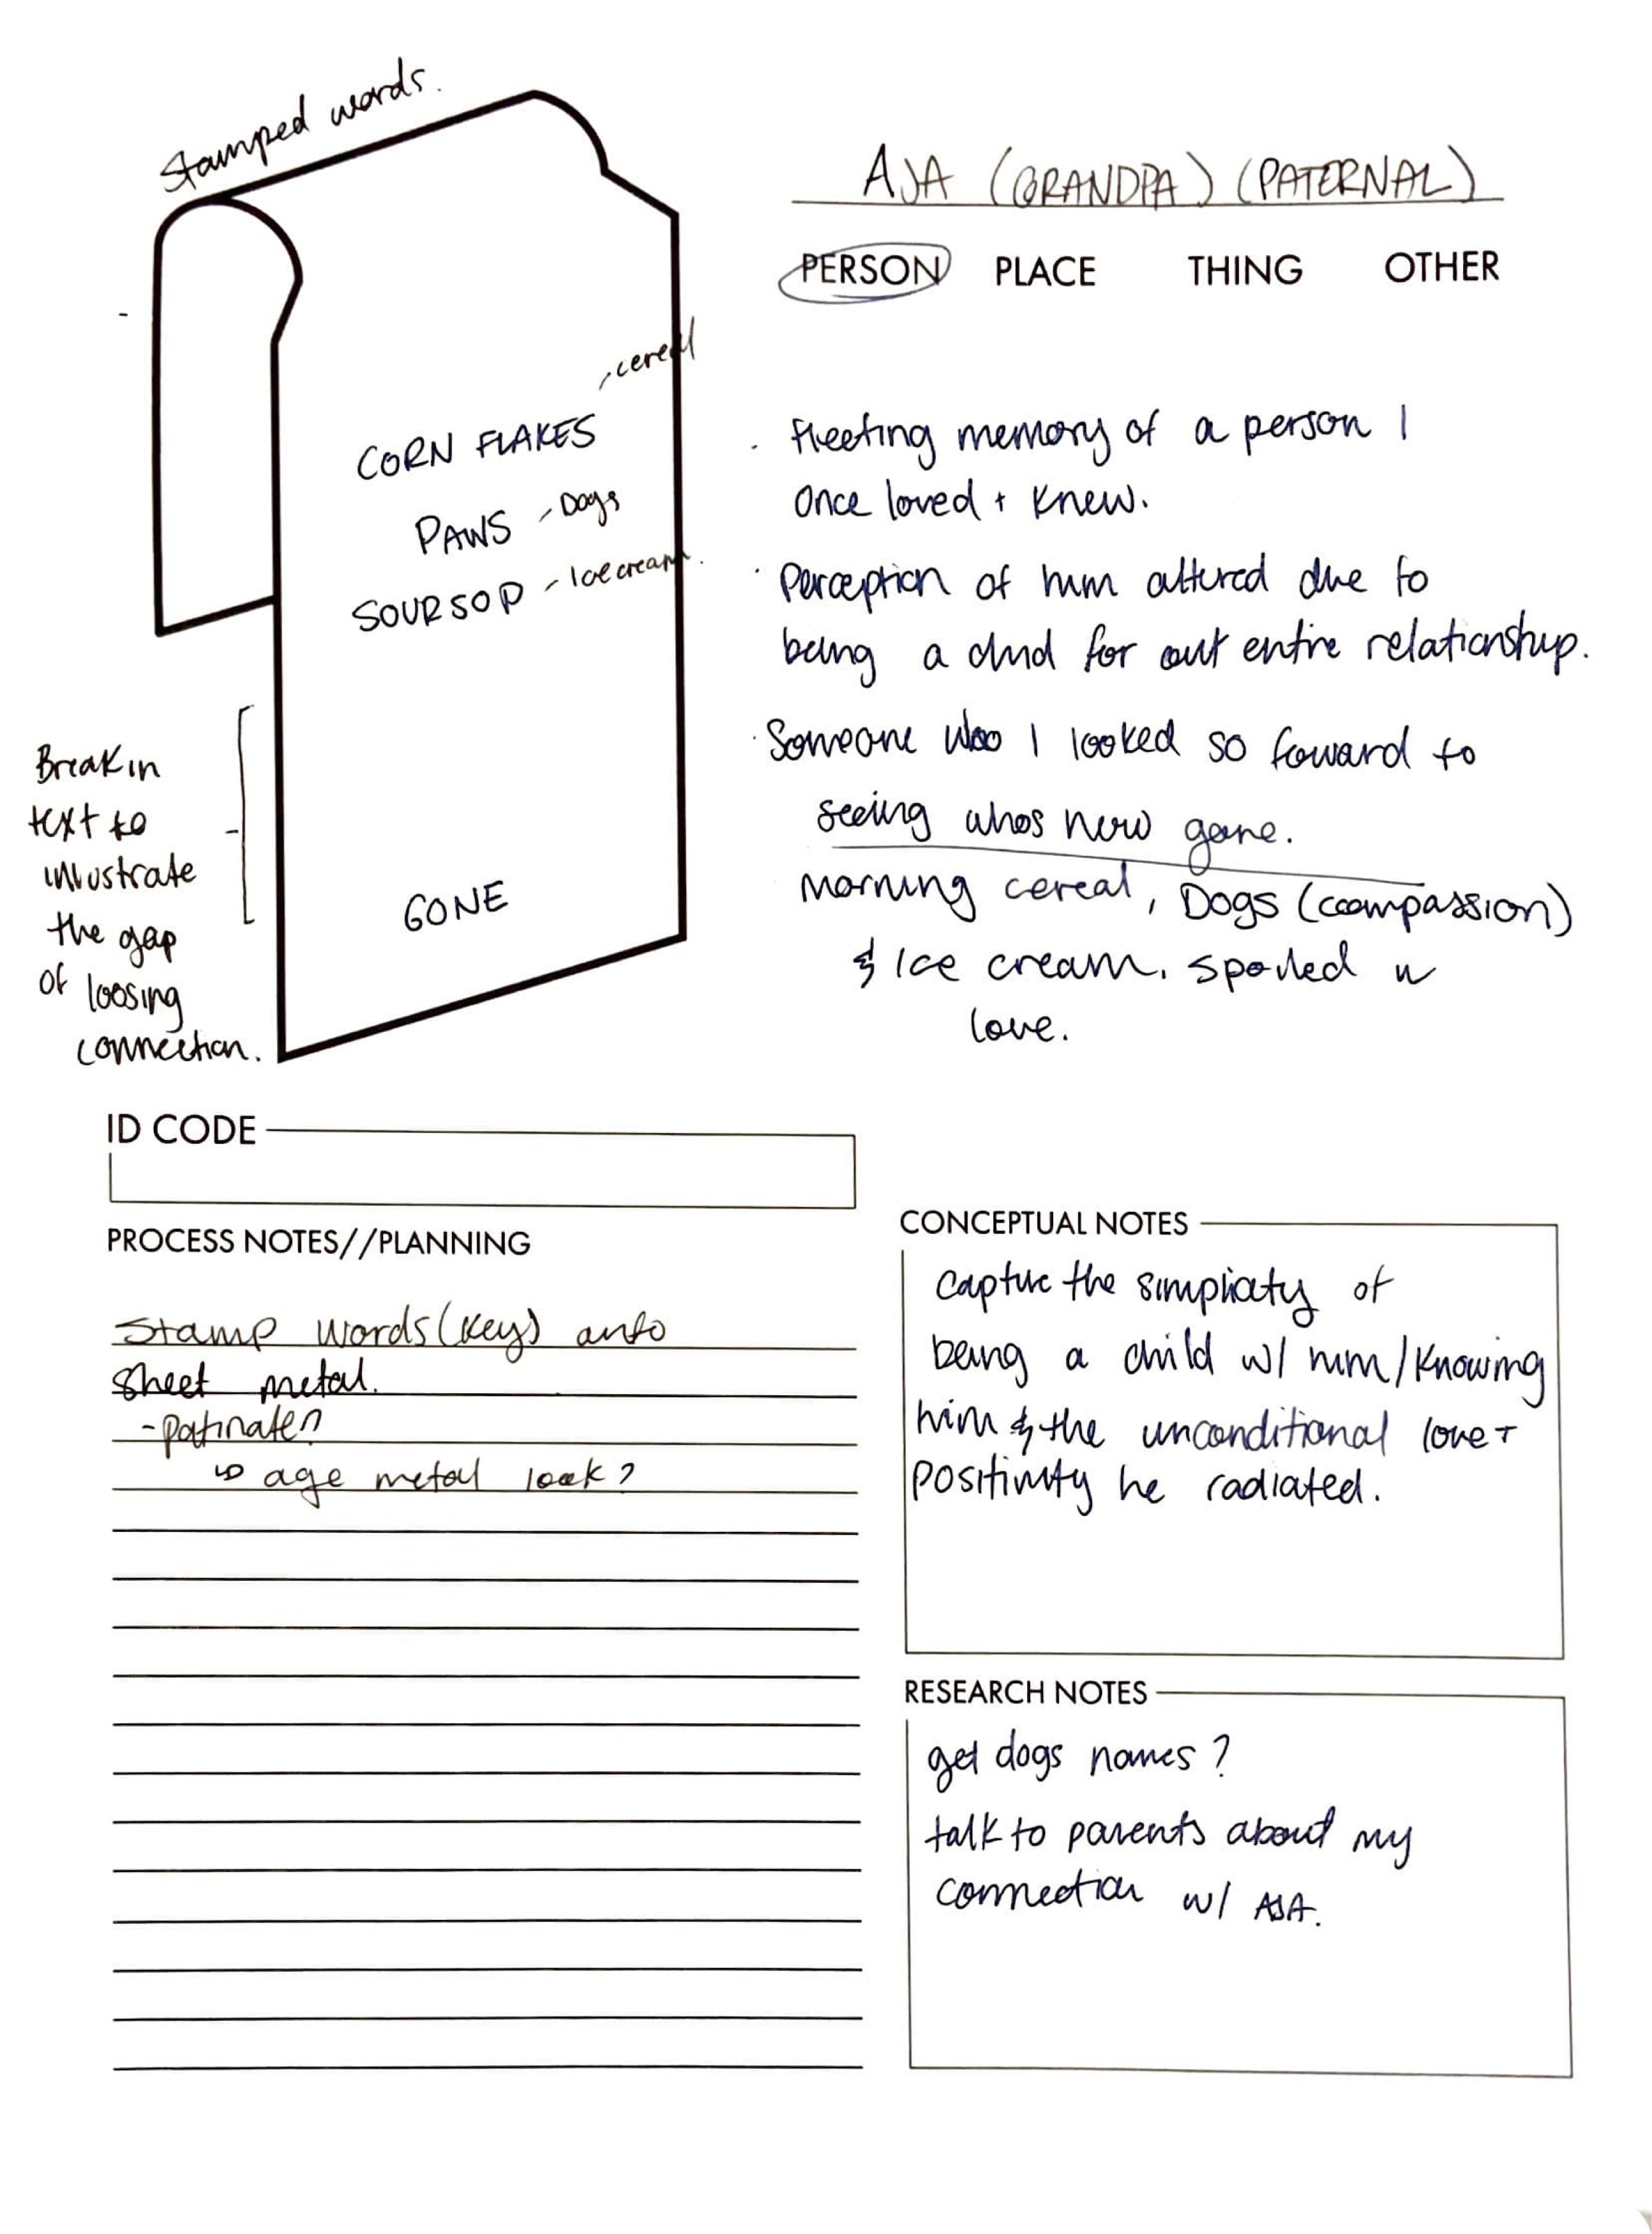 Stamped words.
AJA (GRANDPA) (PATERNAL)
PERSON PLACE THING OTHER
- cereal
CORN FLAKES
PAWS - Dogs
SOURSOP - Ice cream.
Break in
text to
illustrate
the gap
of loosing
connection.
GONE
· fleeting memory of a person I
once loved + knew.
· Perception of him altered due to
being a child for out entire relationship.
· Someone who I looked so foward to
seeing whos now gone.
morning cereal, Dogs (compassion)
& Ice cream. spoiled w
love.
ID CODE
PROCESS NOTES//PLANNING
Stamp words (key) onto
sheet metal.
- patinate?
↳ age metal look?
CONCEPTUAL NOTES
capture the simplicity of
being a child w/ him/knowing
him & the unconditional love +
positivity he radiated.
RESEARCH NOTES
get dogs names?
talk to parents about my
connection w/ AJA.